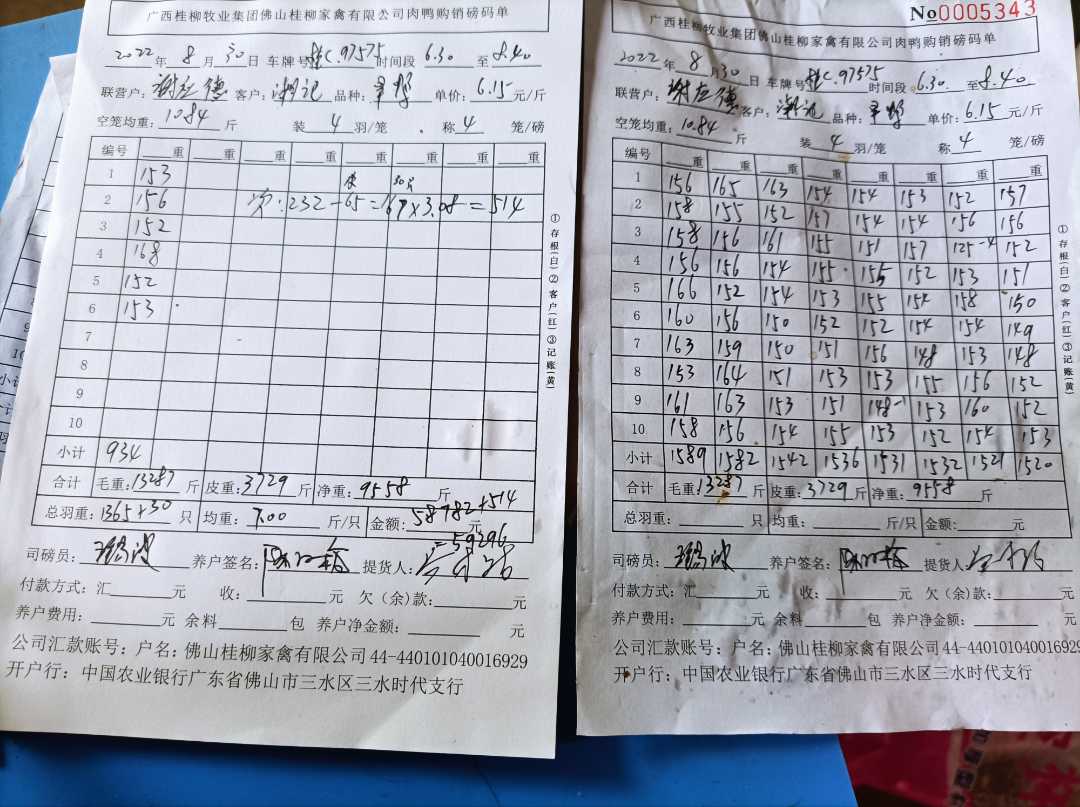 广西桂柳牧业集团佛山桂柳家禽有限公司肉鸭购销磅码单
2022年 8月 30日 车牌号 桂C.97575 时间段 6.30 至 8.40
联营户: 谢左德 客户: 潮记 品种: 单价: 6.15 元/斤
空笼均重: 10.84 斤 装 4 羽/笼 称 4 笼/磅
编号 重 重 重 重 重 重 重 重
1 153 皮 30只
2 156 次:232-65=167×3.08=514
3 152
4 168
5 152
6 153
7
8
9
10
小计 934
合计 毛重: 13287 斤 皮重: 3729 斤 净重: 9558 斤
总羽重: 1365+30 只 均重: 7.00 斤/只 金额: 58782+514 元
=59296
司磅员: 养户签名: 提货人:
付款方式: 汇 元 收: 元 欠(余)款: 元
养户费用: 元 余料 包 养户净金额: 元
公司汇款账号: 户名: 佛山桂柳家禽有限公司 44-440101040016929
开户行: 中国农业银行广东省佛山市三水区三水时代支行
①存根(白)②客户(红)③记账(黄)
No0005343
广西桂柳牧业集团佛山桂柳家禽有限公司肉鸭购销磅码单
2022年 8月 30日 车牌号 桂C.97575 时间段 6.30 至 8.40
联营户: 谢左德 客户: 潮记 品种: 单价: 6.15 元/斤
空笼均重: 10.84 斤 装 4 羽/笼 称 4 笼/磅
编号 重 重 重 重 重 重 重 重
1 156 165 163 154 154 153 152 157
2 158 155 152 157 154 154 156 156
3 158 156 161 155 151 157 125-4 152
4 156 156 154 155 155 152 153 151
5 166 152 154 153 155 154 158 150
6 160 156 150 152 152 154 154 149
7 163 159 150 151 156 148 153 148
8 153 164 151 153 153 155 156 152
9 161 163 153 151 148-1 153 160 152
10 158 156 154 155 153 152 154 153
小计 1589 1582 1542 1536 1531 1532 1521 1520
合计 毛重: 13287 斤 皮重: 3729 斤 净重: 9558 斤
总羽重: 只 均重: 斤/只 金额: 元
司磅员: 养户签名: 提货人:
付款方式: 汇 元 收: 元 欠(余)款: 元
养户费用: 元 余料 包 养户净金额: 元
公司汇款账号: 户名: 佛山桂柳家禽有限公司 44-440101040016929
开户行: 中国农业银行广东省佛山市三水区三水时代支行
①存根(白)②客户(红)③记账(黄)